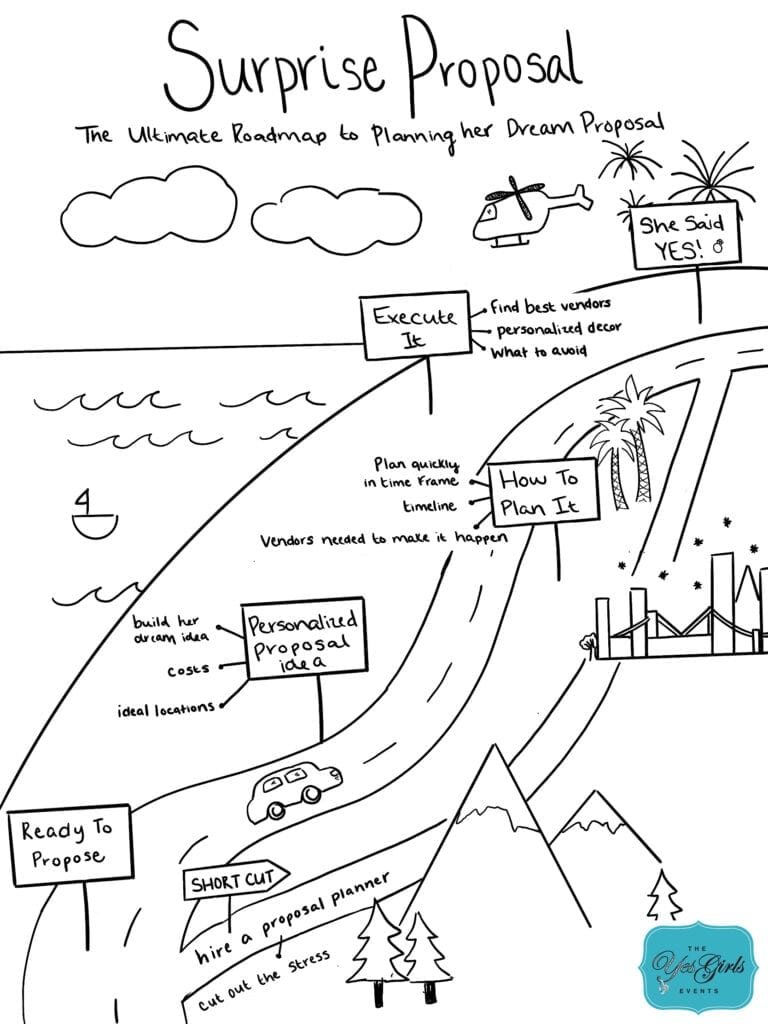 Surprise Proposal
The Ultimate Roadmap to Planning her Dream Proposal
She Said
YES!
Execute
It
Find best vendors
personalized decor
What to avoid
How To
Plan It
Plan quickly
in time frame
timeline
Vendors needed to make it happen
Personalized
Proposal
idea
build her
dream idea
costs
ideal locations
Ready To
Propose
SHORT CUT
hire a proposal planner
cut out the stress
THE
Yes Girls
EVENTS